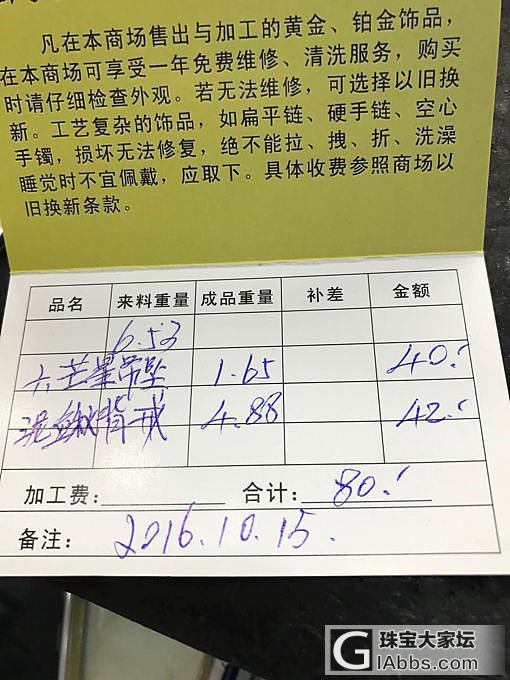 凡在本商场售出与加工的黄金、铂金饰品，
在本商场可享受一年免费维修、清洗服务，购买
时请仔细检查外观。若无法维修，可选择以旧换
新。工艺复杂的饰品，如扁平链、硬手链、空心
手镯，损坏无法修复，绝不能拉、拽、折、洗澡
睡觉时不宜佩戴，应取下。具体收费参照商场以
旧换新条款。
品名 来料重量 成品重量 补差 金额
6.53
六芒星吊坠 1.65 40.
泥鳅背戒 4.88 42.
加工费： 合计： 80.
备注： 2016.10.15.
珠宝大家坛
iAbbs.com